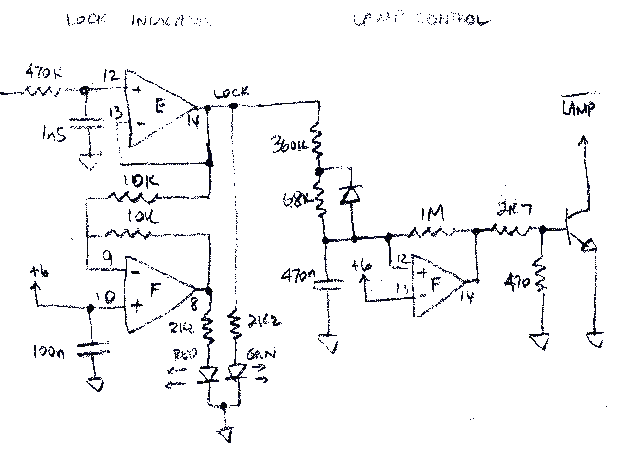 LOCK INDICATOR
LAMP CONTROL
470K
12
+
E
13
-
14
LOCK
1n5
10K
10K
9
-
F
8
+6
10
+
100n
2K2
2K2
RED
GRN
360K
68K
470n
1M
+6
12
+
F
13
-
14
2K7
470
LAMP